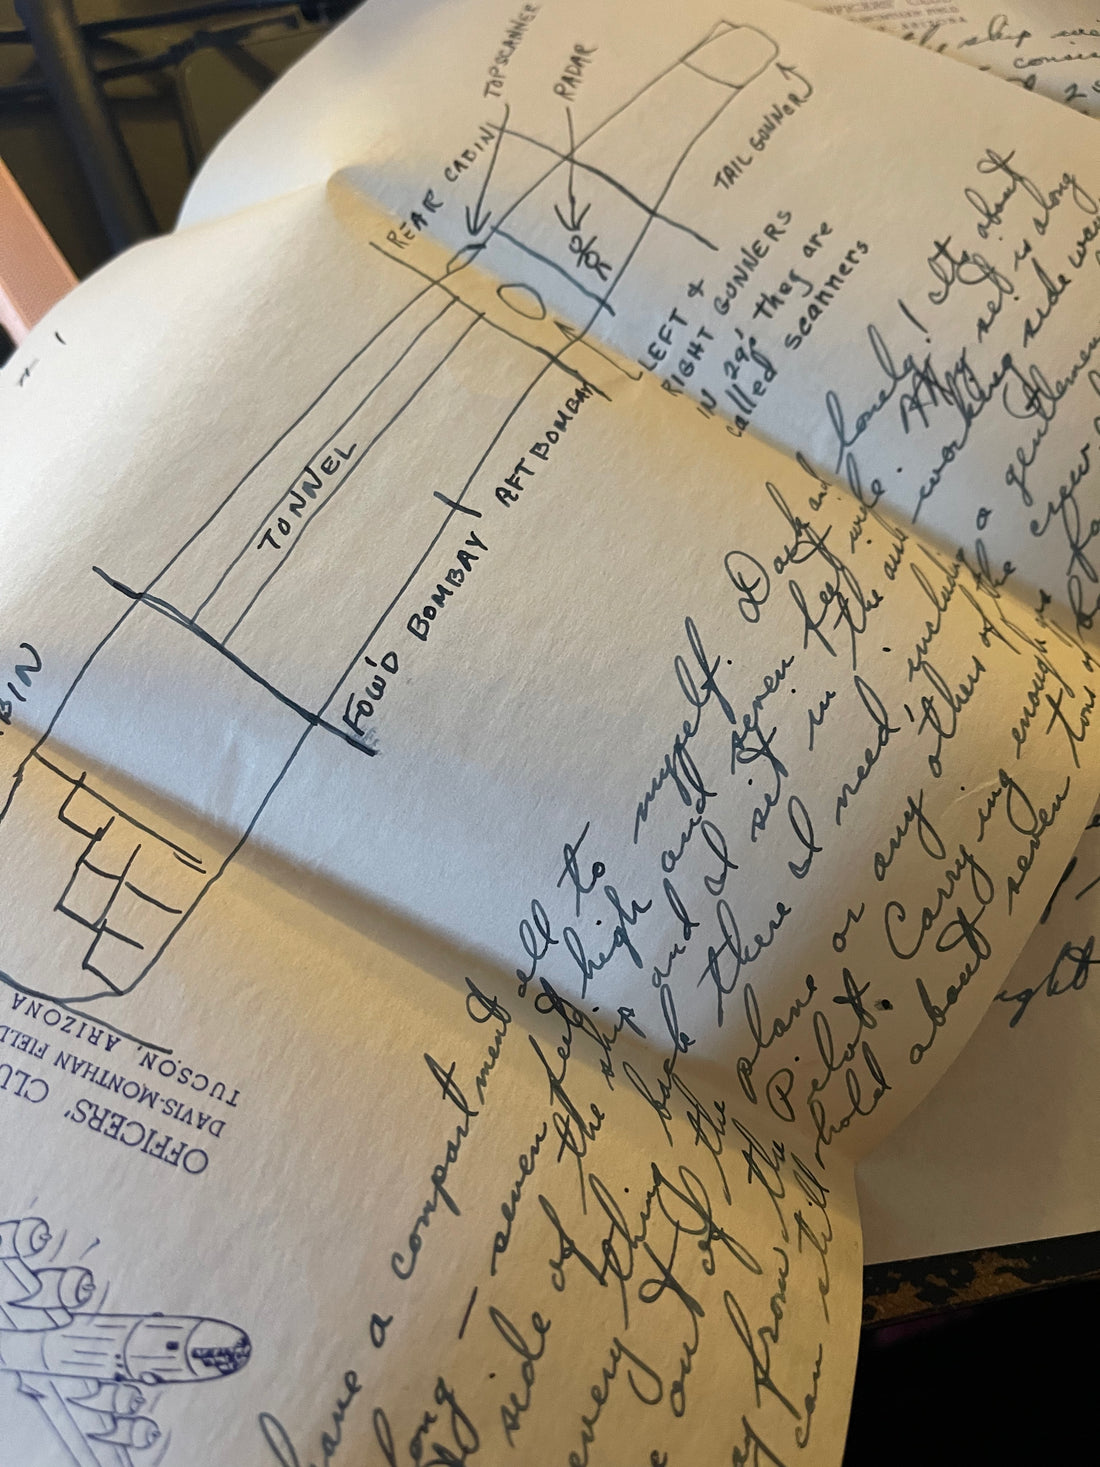 TOPSCANNER
RADAR
REAR CABIN
TAIL GUNNER
LEFT +
RIGHT GUNNERS
IN 29's they are
called scanners
TONNEL
AFT BOMBAY
FOW'D BOMBAY
BIN
OFFICERS' CLU
DAVIS-MONTHAN FIELD
TUCSON, ARIZONA
ARIZONA
ship
consis
have a compartment all to myself. Dark and lonely! Its about
long — seven feet high and seven feet wide. My set is along
side of the ship and I sit in the aisle working side wa
every thing back there I need including a gentlemen
out of the plane or any others of the crew
from the Pilot. Carrying enough
can still hold about seven tons of